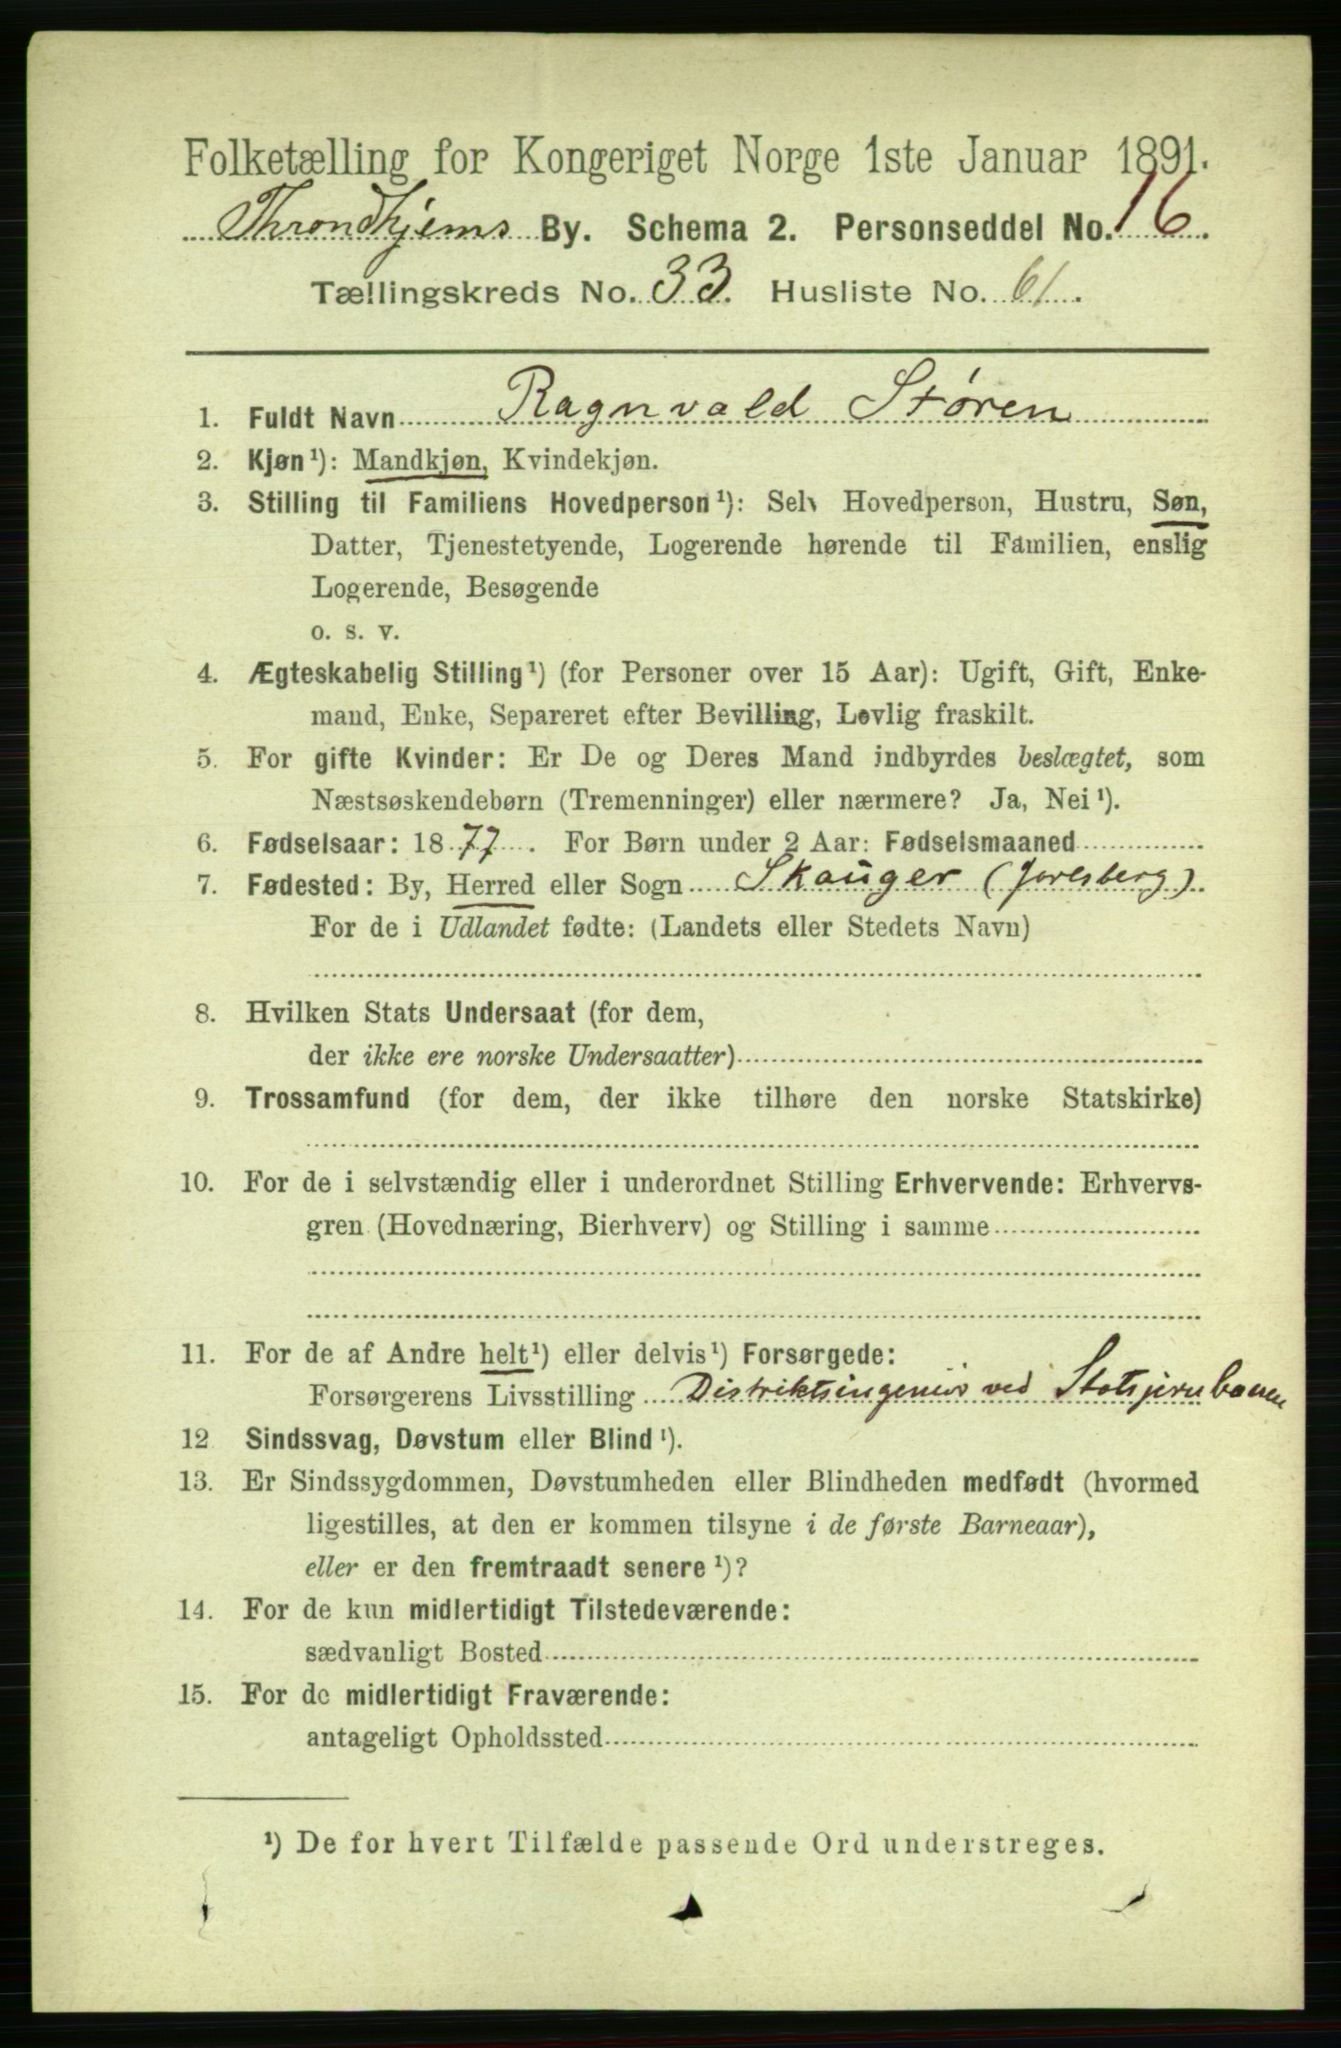 Folketælling for Kongeriget Norge 1ste Januar 1891.
Throndhjems By. Schema 2. Personseddel No. 16.
Tællingskreds No. 33. Husliste No. 61.
1. Fuldt Navn Ragnvald Støren
2. Kjøn¹): Mandkjøn, Kvindekjøn.
3. Stilling til Familiens Hovedperson¹): Selv Hovedperson, Hustru, Søn,
Datter, Tjenestetyende, Logerende hørende til Familien, enslig
Logerende, Besøgende
o. s. v.
4. Ægteskabelig Stilling¹) (for Personer over 15 Aar): Ugift, Gift, Enke-
mand, Enke, Separeret efter Bevilling, Lovlig fraskilt.
5. For gifte Kvinder: Er De og Deres Mand indbyrdes beslægtet, som
Næstsøskendebørn (Tremenninger) eller nærmere? Ja, Nei¹).
6. Fødselsaar: 1877. For Børn under 2 Aar: Fødselsmaaned
7. Fødested: By, Herred eller Sogn Skauger (Jarlsberg)
For de i Udlandet fødte: (Landets eller Stedets Navn)
8. Hvilken Stats Undersaat (for dem,
der ikke ere norske Undersaatter)
9. Trossamfund (for dem, der ikke tilhøre den norske Statskirke)
10. For de i selvstændig eller i underordnet Stilling Erhvervende: Erhvervs-
gren (Hovednæring, Bierhverv) og Stilling i samme
11. For de af Andre helt¹) eller delvis¹) Forsørgede:
Forsørgerens Livsstilling Distriktsingeniør ved Statsjernbanen
12 Sindssvag, Døvstum eller Blind¹).
13. Er Sindssygdommen, Døvstumheden eller Blindheden medfødt (hvormed
ligestilles, at den er kommen tilsyne i de første Barneaar),
eller er den fremtraadt senere¹)?
14. For de kun midlertidigt Tilstedeværende:
sædvanligt Bosted
15. For de midlertidigt Fraværende:
antageligt Opholdssted
¹) De for hvert Tilfælde passende Ord understreges.